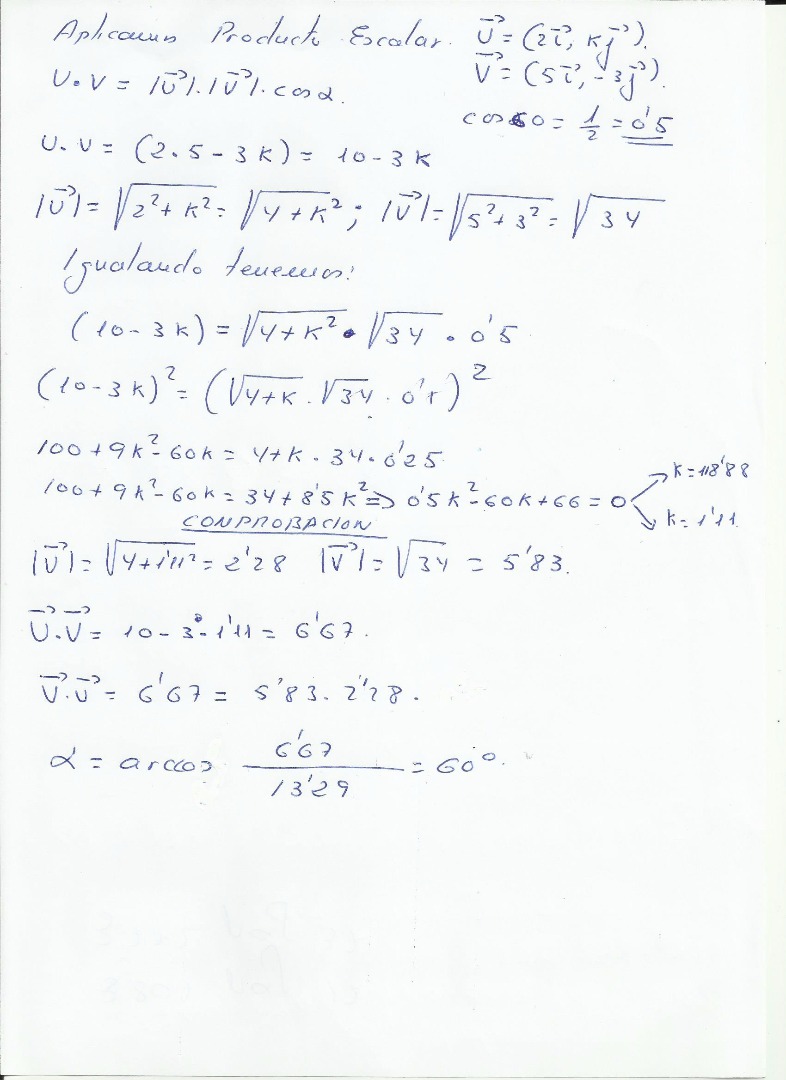 Aplicamos Producto Escalar. U⃗ = (2i⃗, Kj⃗).
U·V = |U⃗|.|V⃗|. cos α. V⃗ = (5i⃗, -3j⃗).
cos 60 = 1/2 = 0'5
U. V = (2.5 - 3K) = 10 - 3K
|U⃗| = √(2² + K²) = √(4 + K²) ; |V⃗| = √(5² + 3²) = √34
Igualando tenemos:
(10 - 3K) = √(4 + K²) • √34 . 0'5
(10 - 3K)² = (√(4 + K) . √34 . 0'5)²
100 + 9K² - 60K = 4 + K . 34 . 0'25
100 + 9K² - 60K = 34 + 8'5K² => 0'5K² - 60K + 66 = 0 K = 118'88
K = 1'11
COMPROBACION
|U⃗| = √(4 + 1'11²) = 2'28 |V⃗| = √34 = 5'83.
U⃗.V⃗ = 10 - 3 · 1'11 = 6'67.
V⃗.U⃗ = 6'67 = 5'83. 2'28.
α = arccos 6'67/13'29 = 60°.